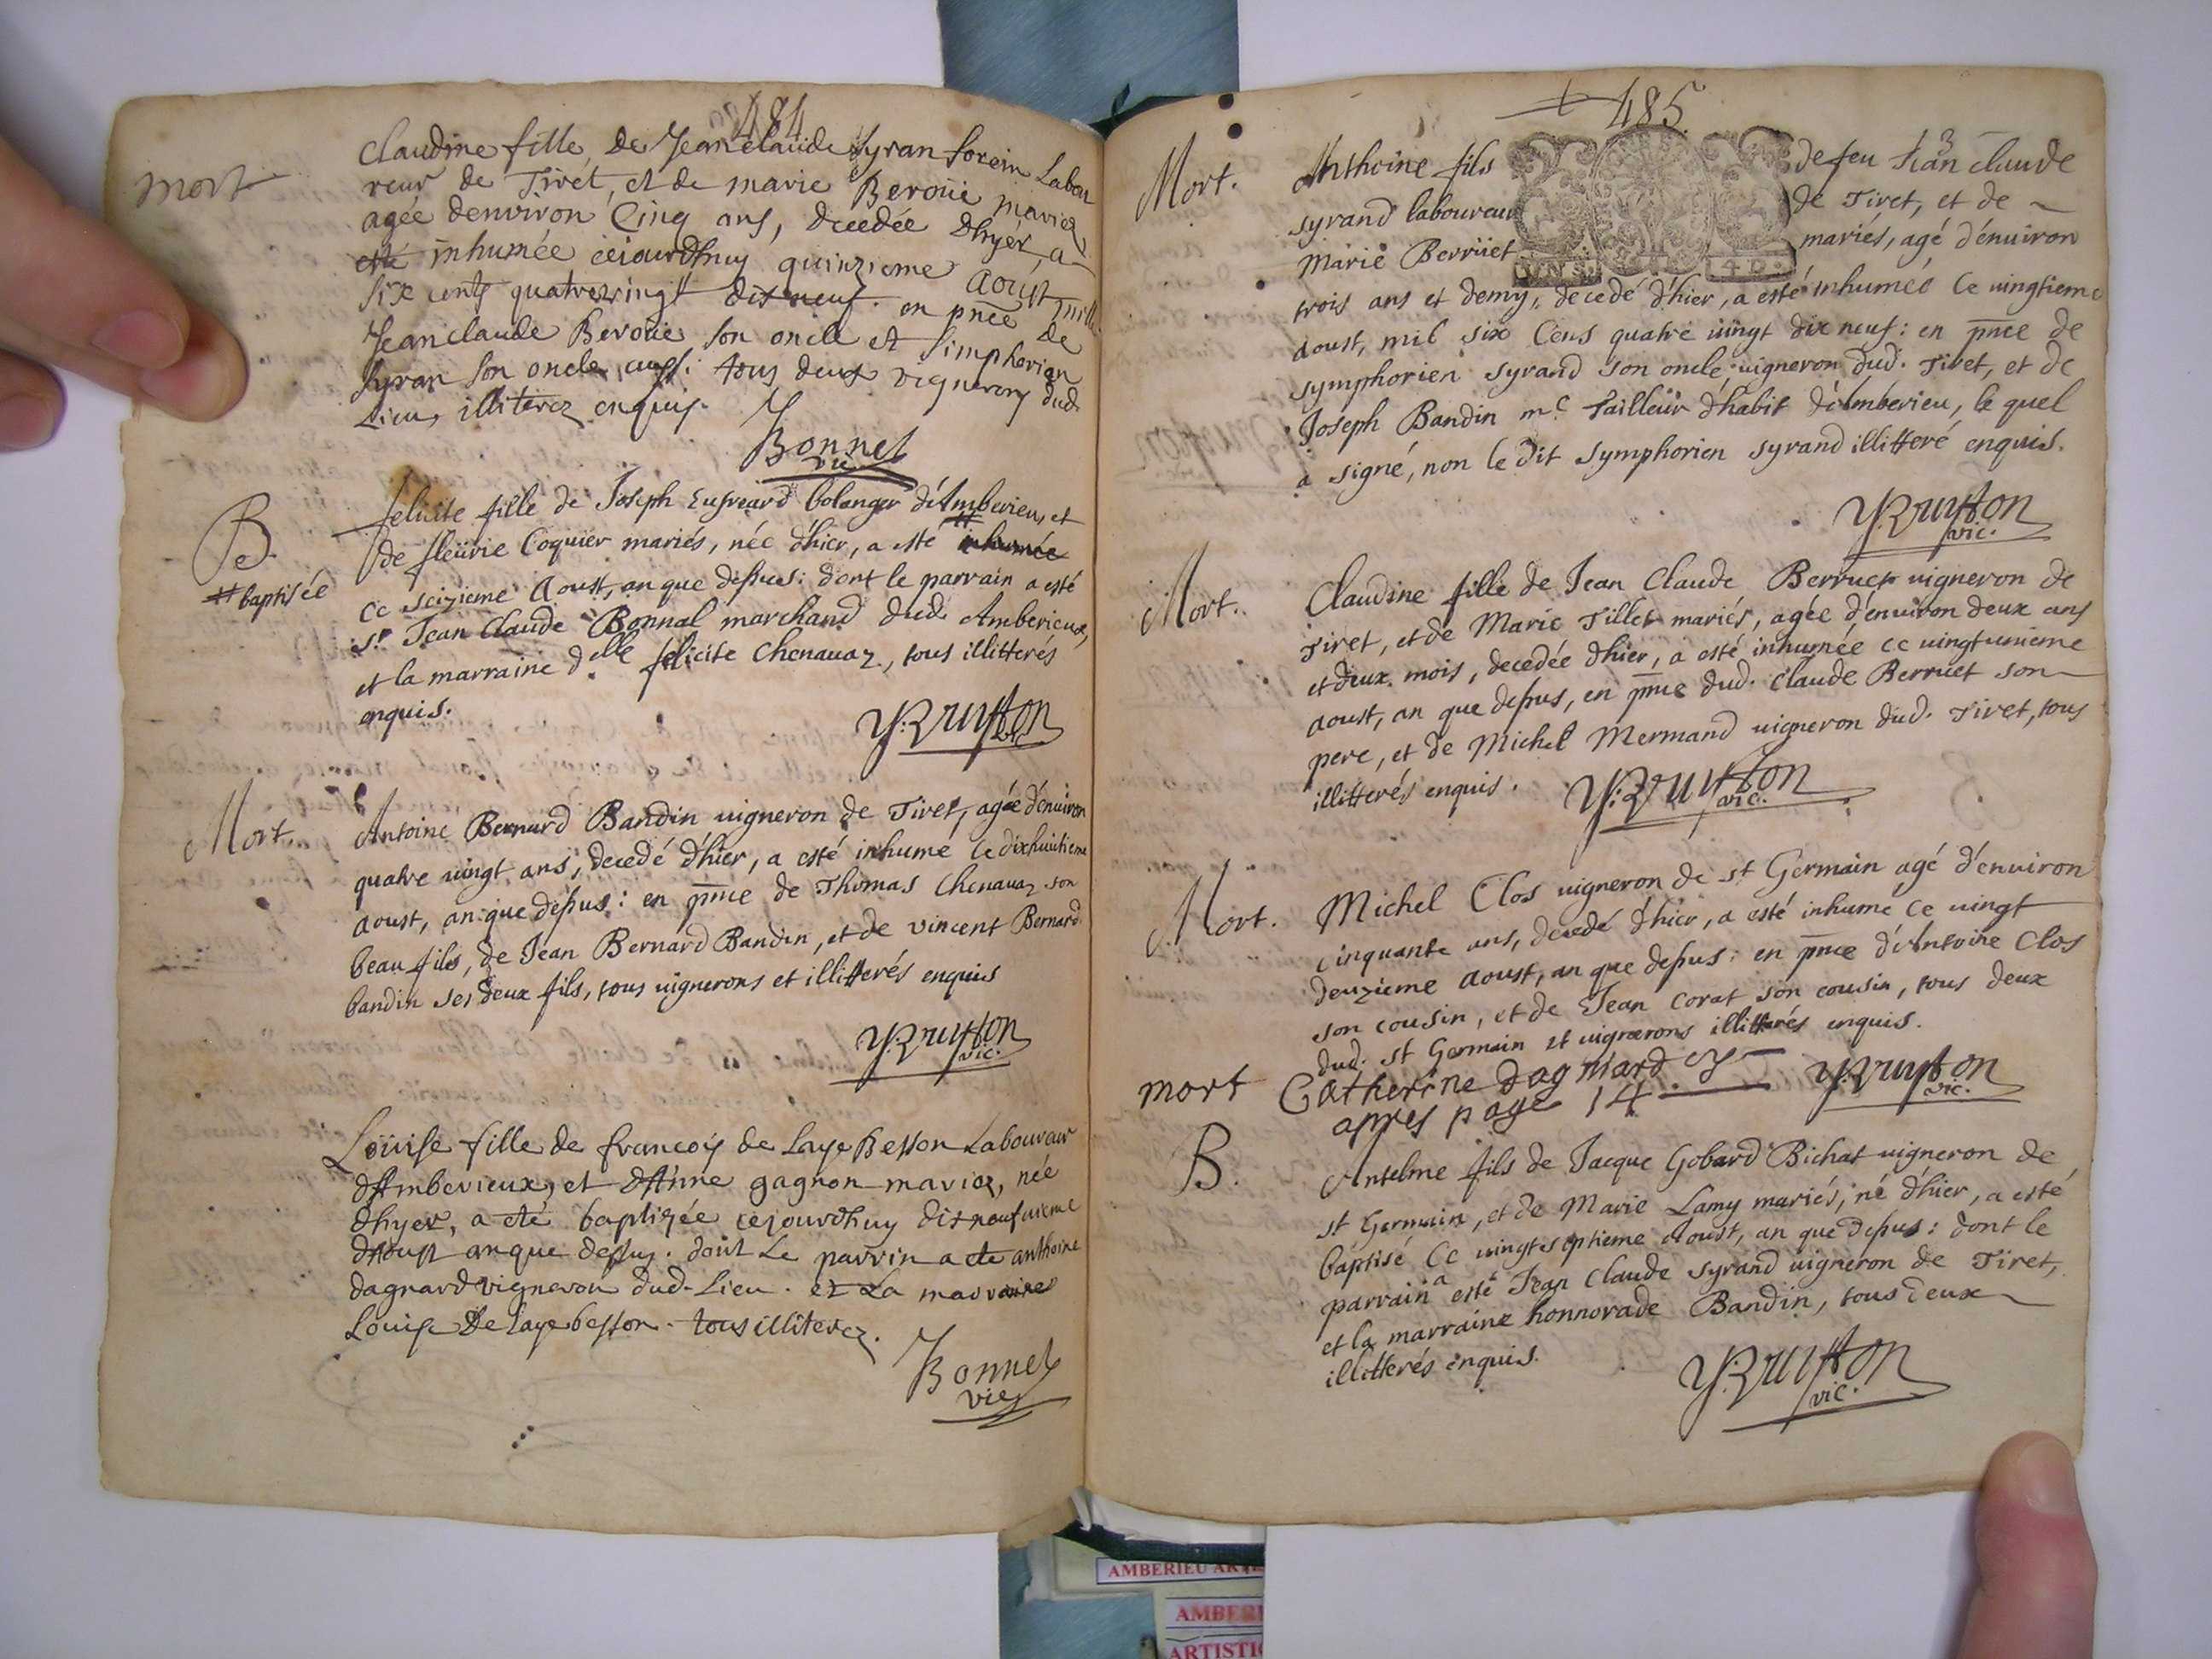 484
mort
Claudine fille de Jean claude Syran forein Labou
reur de Tiret, et de marie Beroüe mariez
agée denviron Cinq ans, decedée Dhyér, a
esté inhumée cejourdhuy quinzieme aoust mille
six cents quatrevingt dix neuf. en pnce de
Jeanclaude Beroüe son oncle et Simphorien
Syran son oncle aussi tous deux vignerons dud.
Lieu, illiterez enquis.
Bonnet
vic
B
# baptisée
feliste fille de Joseph bolanger d'Amberieu, et
de fleürie Coquier mariés, née d'hier, a esté # inhumée
ce seizieme Aoust, an que dessus: dont le parrain a esté
sr. Jean Claude Bonnal marchand dud. Amberieux,
et la marraine d.elle félicite Chenavaz, tous illitterés
enquis.
vic.
Mort.
Antoine Bernard Bandin vigneron de Tiret, agée d'enuiron
quatre uingt ans, decedé d'hier, a esté inhumé ce dixhuitieme
aoust, an que dessus: en pnce de Thomas Chenavaz son
beau fils, de Jean Bernard Bandin, et de vincent Bernard
bandin ses deux fils, tous uignerons et illitterés enquis
vic.
Loüise fille de francois de Laye Besson Laboureur
d'Amberieux, et d'Anne gagnon mariez, née
dhyer, a eté baptizée cejourdhuy dixneufuieme
d'Aoust an que dessus. dont Le parrin a ete anthoine
dagnard vigneron dud. Lieu. et La marraine
Louise De laye besson. tous illiterez.
Bonnet
vic
485
3
Mort.
Anthoine fils de feu Jean claude
syrand laboureur de Tiret, et de
Marie Berruet mariés, agé d'énuiron
LYNS. 4 D.
trois ans et demy, decedé d'hier, a esté inhumés ce uingtieme
aoust, mil six Cens quatre uingt dix neuf: en pnce de
symphorien syrand son oncle uigneron dud. Tiret, et de
Joseph Bandin me. tailleur d'habit d'Amberieu, le quel
a signé, non le dit symphorien syrand illitteré enquis.
vic.
Mort.
Claudine fille de Jean Claude Berruet uigneron de
Tiret, et de Marie Tillet mariés, agée d'énuiron deux ans
et deux mois, decedée d'hier, a esté inhumée ce uingtunieme
aoust, an que dessus, en pnce dud. Claude Berruet son
pere, et de Michel Mermand uigneron dud. Tiret, tous
illitterés enquis.
vic.
Mort.
Michel Clos uigneron de st Germain agé d'énuiron
cinquante ans, decedé d'hier, a esté inhumé ce uingt
deuzieme aoust, an que dessus: en pnce d'Antoine Clos
son cousin, et de Jean Corat son cousin, tous deux
dud. st Germain et uignerons illitterés enquis.
vic.
mort Catherine dagnard cy
apres page 14
B.
Antelme fils de Jacque Gobard Bichat uigneron de
st Germain, et de Marie Lamy mariés, né d'hier, a esté
baptisé ce uingtseptieme Aoust, an que dessus: dont le
parrain a esté Jean Claude syrand uigneron de Tiret,
et la marraine honnorade Bandin, tous deux
illitterés enquis.
vic.
AMBERIEU
AMBERI
ARTISTI